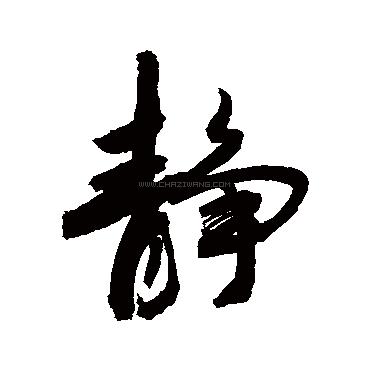 静
WWW.CHAZIWANG.COM